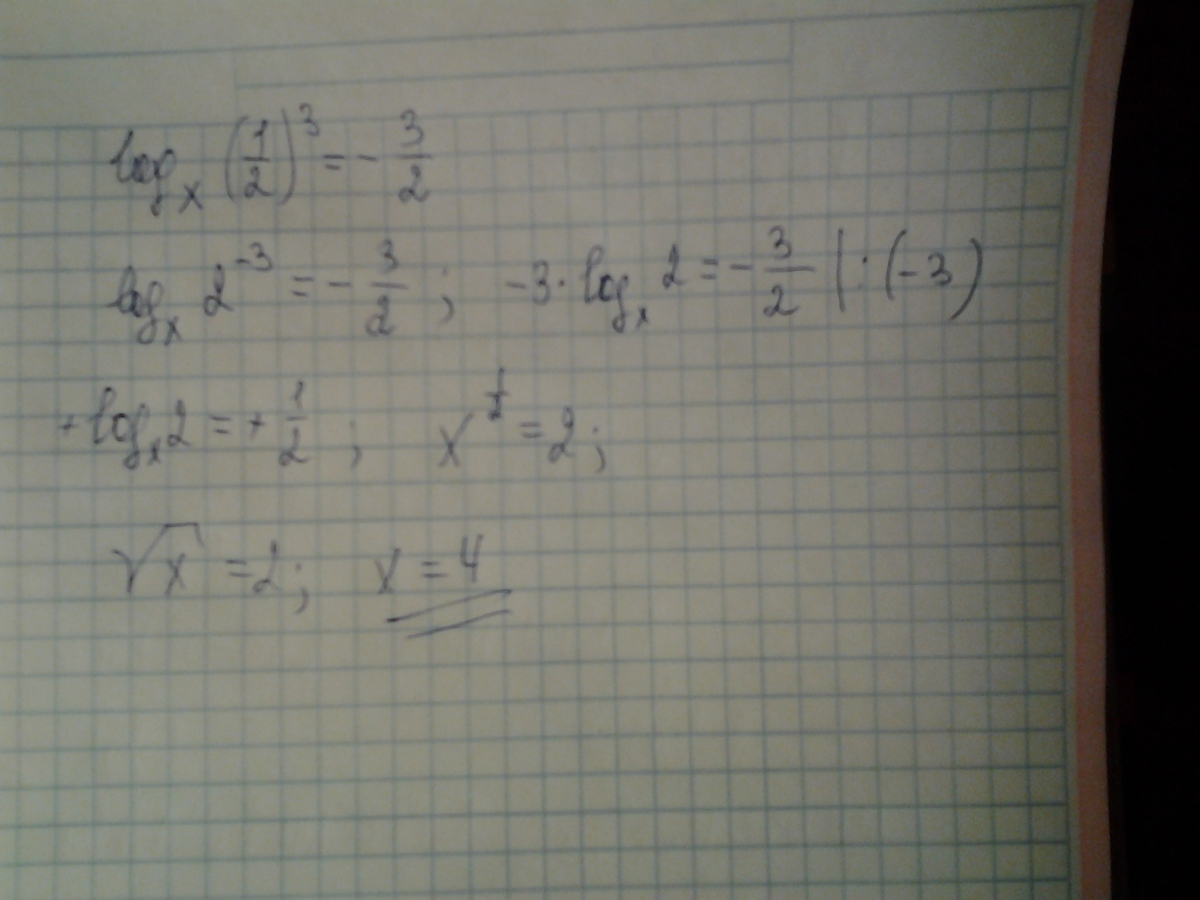 logₓ (1/2)³ = - 3/2
logₓ 2⁻³ = - 3/2 ; -3 · logₓ 2 = - 3/2 | : (-3)
+ logₓ 2 = + 1/2 ; x^(1/2) = 2 ;
√x = 2 ; x = 4